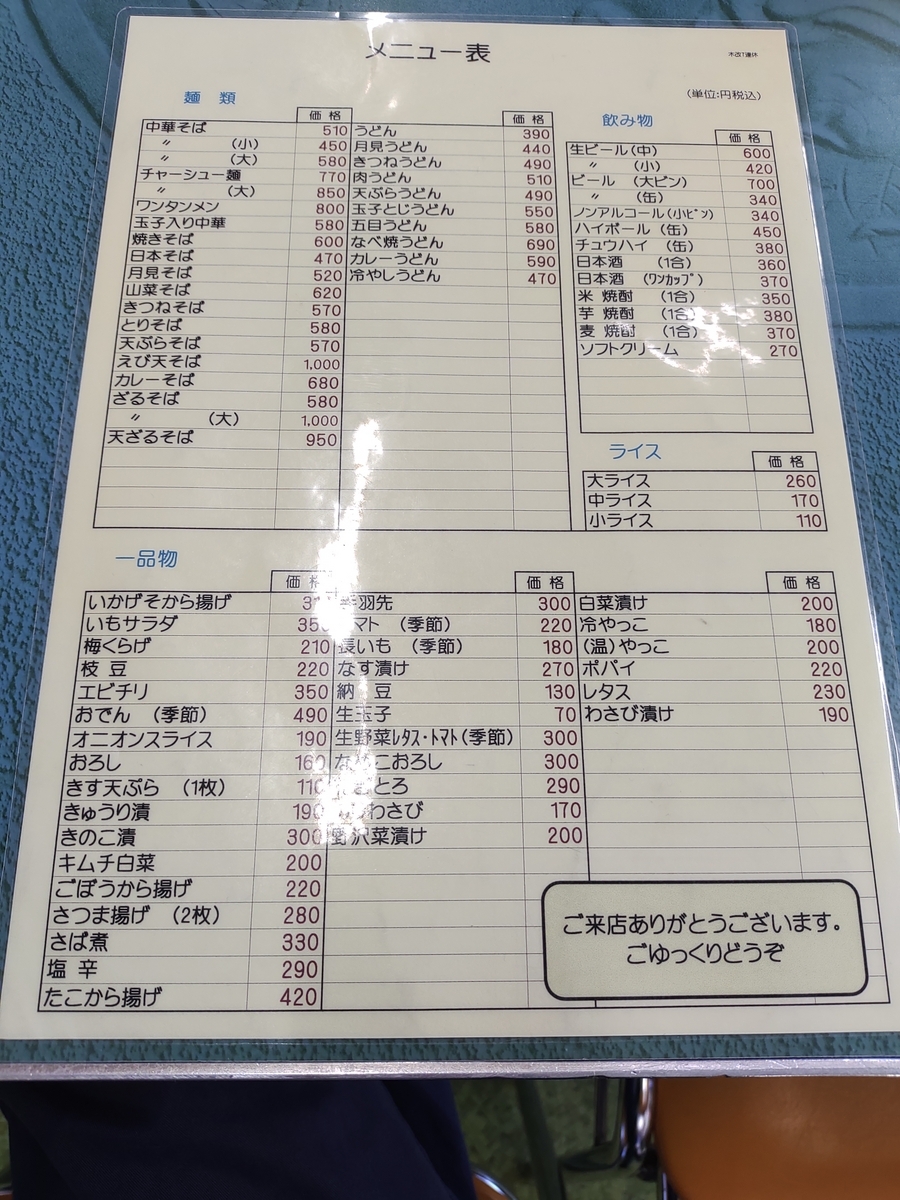 メニュー表
木改7連休
(単位:円税込)
麺 類
価 格
中華そば 510
〃 (小) 450
〃 (大) 580
チャーシュー麺 770
〃 (大) 850
ワンタンメン 800
玉子入り中華 580
焼きそば 600
日本そば 470
月見そば 520
山菜そば 620
きつねそば 570
とりそば 580
天ぷらそば 570
えび天そば 1,000
カレーそば 680
ざるそば 580
〃 (大) 1,000
天ざるそば 950
価 格
うどん 390
月見うどん 440
きつねうどん 490
肉うどん 510
天ぷらうどん 490
玉子とじうどん 550
五目うどん 580
なべ焼うどん 690
カレーうどん 590
冷やしうどん 470
飲み物
価 格
生ビール(中) 600
〃 (小) 420
ビール (大ビン) 700
〃 (缶) 340
ノンアルコール(小ビン) 340
ハイボール (缶) 450
チュウハイ (缶) 380
日本酒 (1合) 360
日本酒 (ワンカップ) 370
米 焼酎 (1合) 350
芋 焼酎 (1合) 380
麦 焼酎 (1合) 370
ソフトクリーム 270
ライス
価 格
大ライス 260
中ライス 170
小ライス 110
一品物
価 格
いかげそから揚げ
いもサラダ
梅くらげ 210
枝 豆 220
エビチリ 350
おでん (季節) 490
オニオンスライス 190
おろし 160
きす天ぷら (1枚) 110
きゅうり漬 190
きのこ漬 300
キムチ白菜 200
ごぼうから揚げ 220
さつま揚げ (2枚) 280
さば煮 330
塩 辛 290
たこから揚げ 420
価 格
手羽先 300
トマト (季節) 220
長いも (季節) 180
なす漬け 270
納 豆 130
生玉子 70
生野菜レタス・トマト(季節) 300
なめこおろし 300
290
170
野沢菜漬け 200
価 格
白菜漬け 200
冷やっこ 180
(温)やっこ 200
ポパイ 220
レタス 230
わさび漬け 190
ご来店ありがとうございます。
ごゆっくりどうぞ